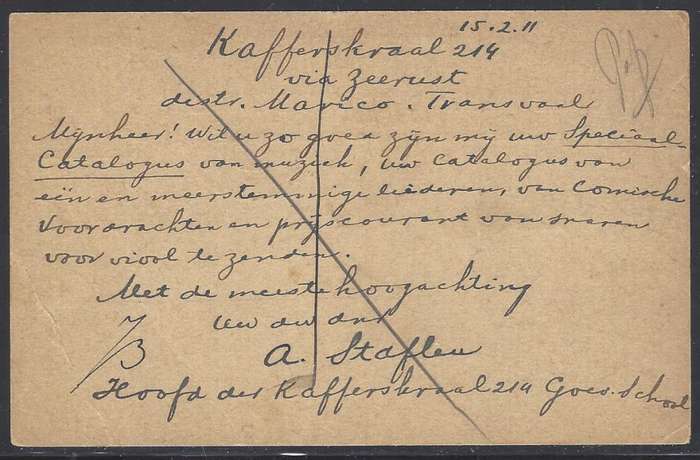 15.2.11
Kafferskraal 214
via Zeerust
distr. Marico. Transvaal
Mynheer! Wil u zo goed zijn mij uw Speciaal-
Catalogus van muziek, uw catalogus van
eën en meerstemmige liederen, van Comische
Voordrachten en prijscourant van snaren
voor viool te zenden.
Met de meeste hoogachting
Uw dw dnr
A. Stafleu
Hoofd der Kafferskraal 214 Goev. School